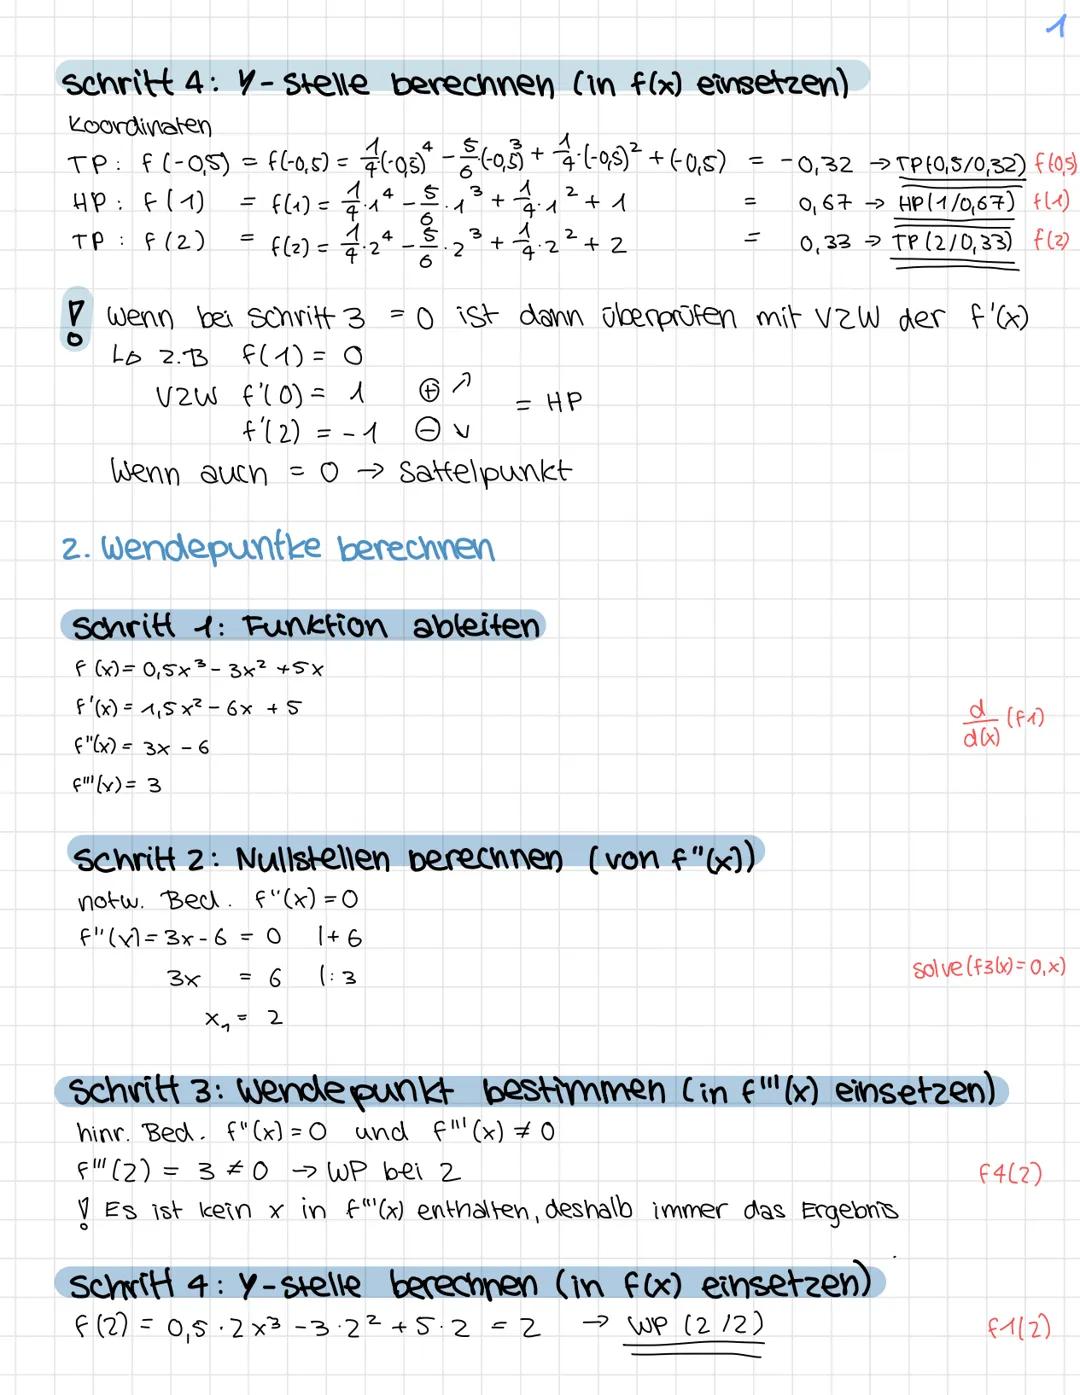 1
Schritt 4: Y-Stelle berechnen (in f(x) einsetzen)
Koordinaten
TP: f(-0,5) = f(-0,5) = 1/4·(-0,5)⁴ - 5/6·(-0,5)³ + 1/4·(-0,5)² + (-0,5) = -0,32 → TP(0,5/0,32) f(0,5)
HP: f(1) = f(1) = 1/4·1⁴ - 5/6·1³ + 1/4·1² + 1 = 0,67 → HP(1/0,67) f(1)
TP: f(2) = f(2) = 1/4·2⁴ - 5/6·2³ + 1/4·2² + 2 = 0,33 → TP(2/0,33) f(2)
! Wenn bei Schritt 3 = 0 ist dann überprüfen mit VZW der f'(x)
↳ z.B f(1) = 0
VZW f'(0) = 1 ⊕ ↗
= HP
f'(2) = -1 ⊖ ↘
Wenn auch = 0 → Sattelpunkt
2. Wendepuntke berechnen
Schritt 1: Funktion ableiten
f(x) = 0,5x³ - 3x² + 5x
f'(x) = 1,5x² - 6x + 5
d/d(x) (f1)
f''(x) = 3x - 6
f'''(x) = 3
Schritt 2: Nullstellen berechnen (von f''(x))
notw. Bed. f''(x) = 0
f''(x) = 3x - 6 = 0 |+6
3x = 6 |:3
solve(f3(x)=0,x)
x₁ = 2
Schritt 3: Wendepunkt bestimmen (in f'''(x) einsetzen)
hinr. Bed. f''(x) = 0 und f'''(x) ≠ 0
f'''(2) = 3 ≠ 0 → WP bei 2 f4(2)
! Es ist kein x in f'''(x) enthalten, deshalb immer das Ergebnis
Schritt 4: Y-Stelle berechnen (in f(x) einsetzen)
f(2) = 0,5·2x³ - 3·2² + 5·2 = 2 → WP (2/2) f1(2)